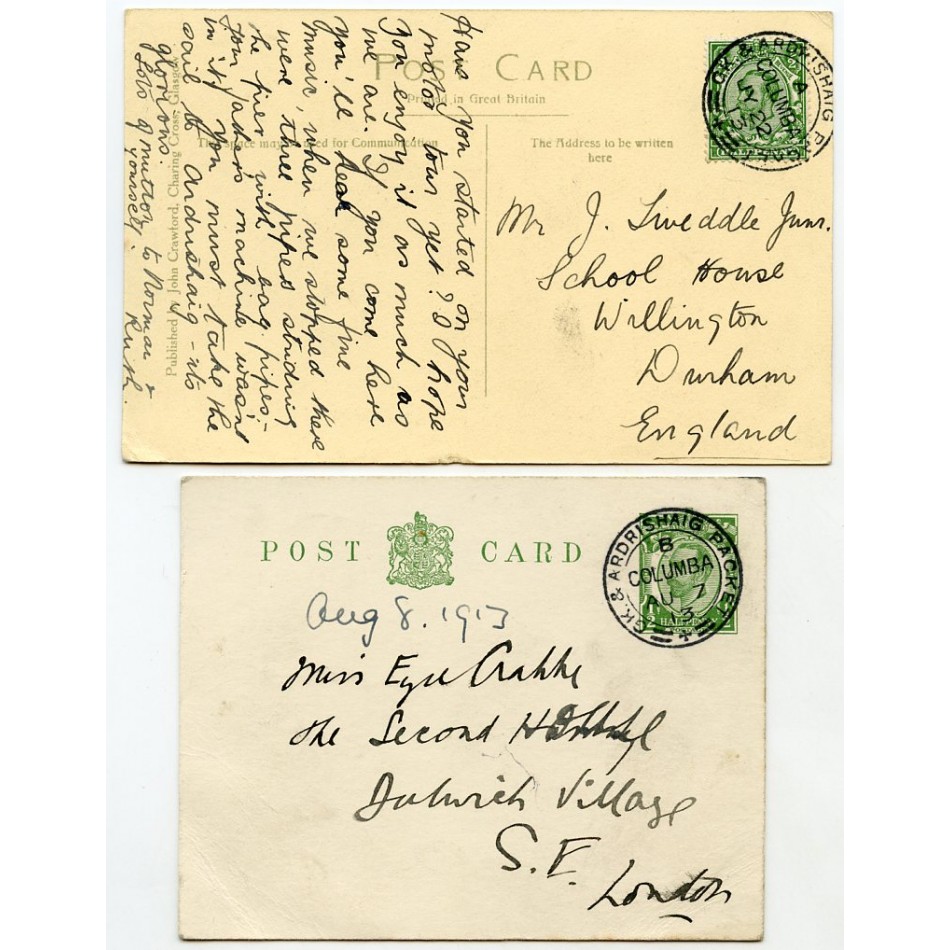 POST CARD
Printed in Great Britain
This space may be used for Communication
The Address to be written
here
Published by John Crawford, Charing Cross, Glasgow
Have you started on your
motor tour yet? I hope
you enjoy it as much as
we are. If you come here
you'll hear some fine
music, when we stopped there
were three pipers striding
the pier with bag pipes –
your father's machine wasn't
in it, you must take the
sail to Ardrishaig – its
glorious.
Lots of mutton to Norman &
yourself. Ruth.
GK. & ARDRISHAIG PACKET
A
COLUMBA
22
13
Mr J. Tweddle Junr.
School House
Willington
Durham
England
POST CARD
GK. & ARDRISHAIG PACKET
B
COLUMBA
AU 7
13
HALFPENNY
Aug 8. 1913
Miss Eyre
The Second
Dulwich Village
S.E.
London